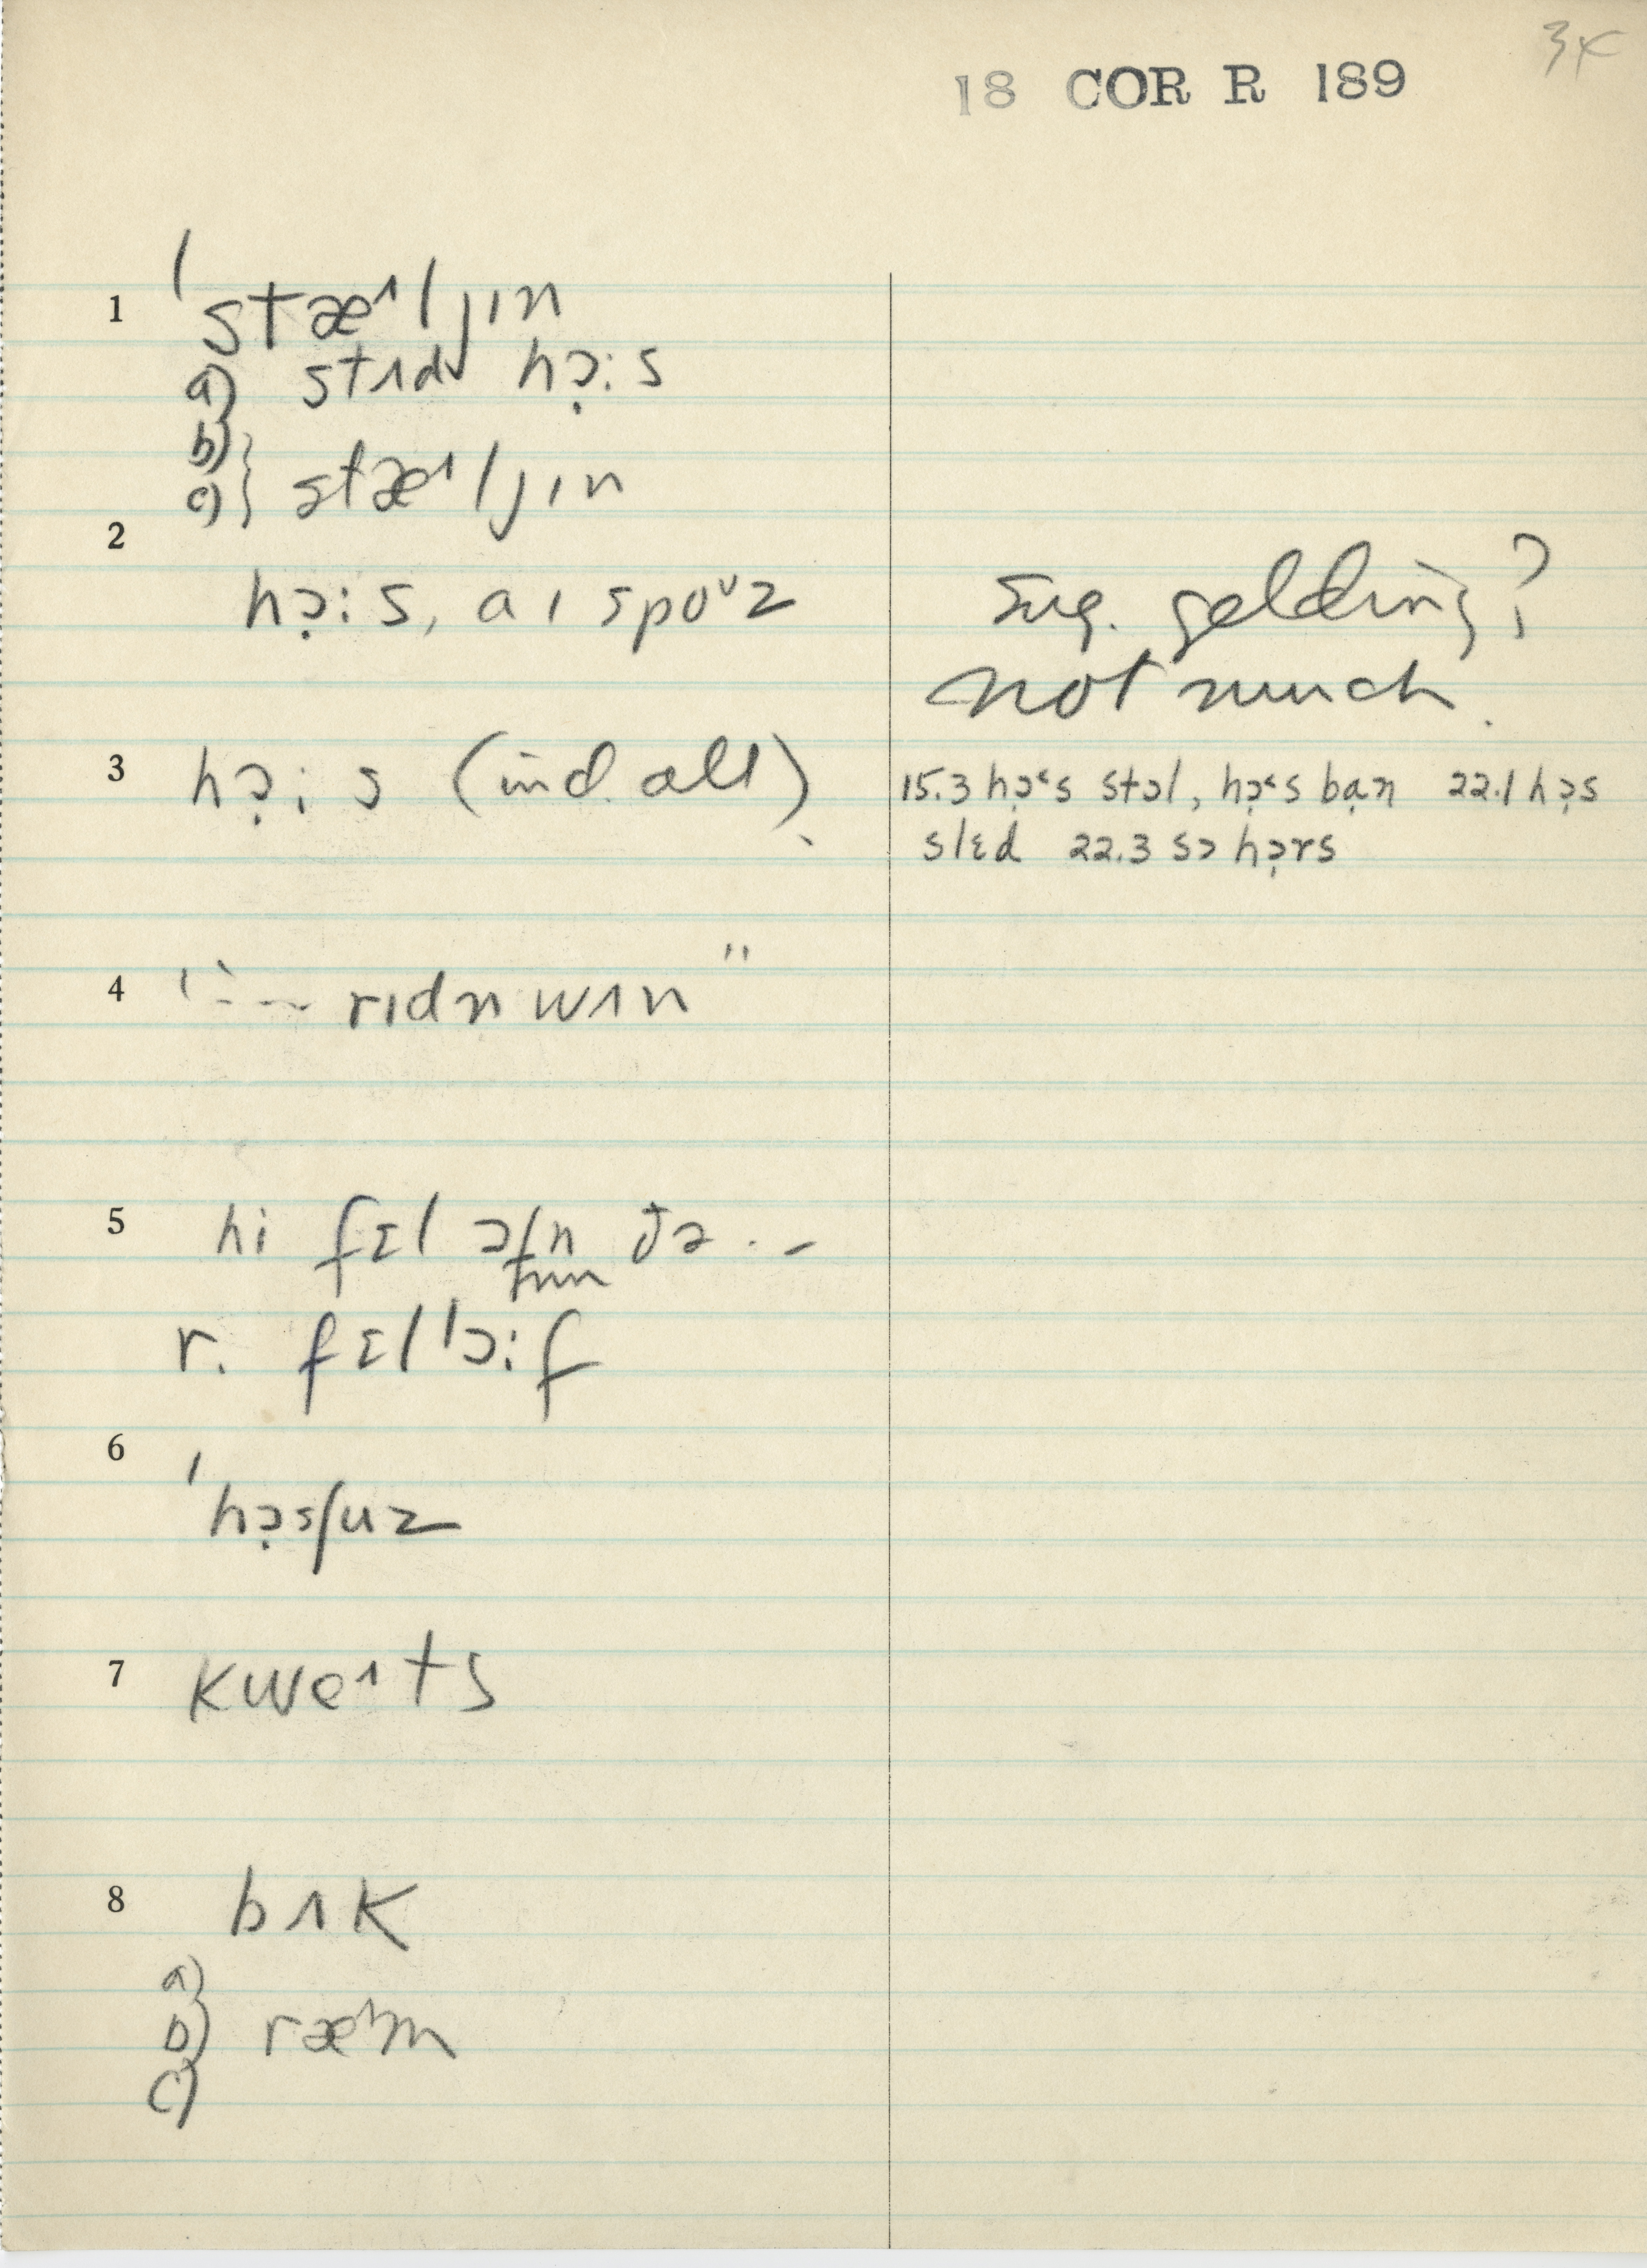 34
18 COR R 189
1 ˈstæˈljɪn
a) stʌd hɔ̣:s
b)
c) } stæˈljɪn
2
hɔ̣:s, aɪ spoᶷz
sug. gelding?
not much.
3 hɔ̣:s (ind. all)
15.3 hɔ̣˂s stɔl, hɔ̣˂s bạn 22.1 hɔ̣s
slɛd 22.3 sɔ hɔ̣rs
4 "-- rɪdn wʌn"
5 hi fɛl ɔfn ðə . -
frm
r. fɛl ˈɔ:f
6
ˈhɔ̣sʃuz
7 kweˈts
8 bʌk
a)
b) ræˈm
c)